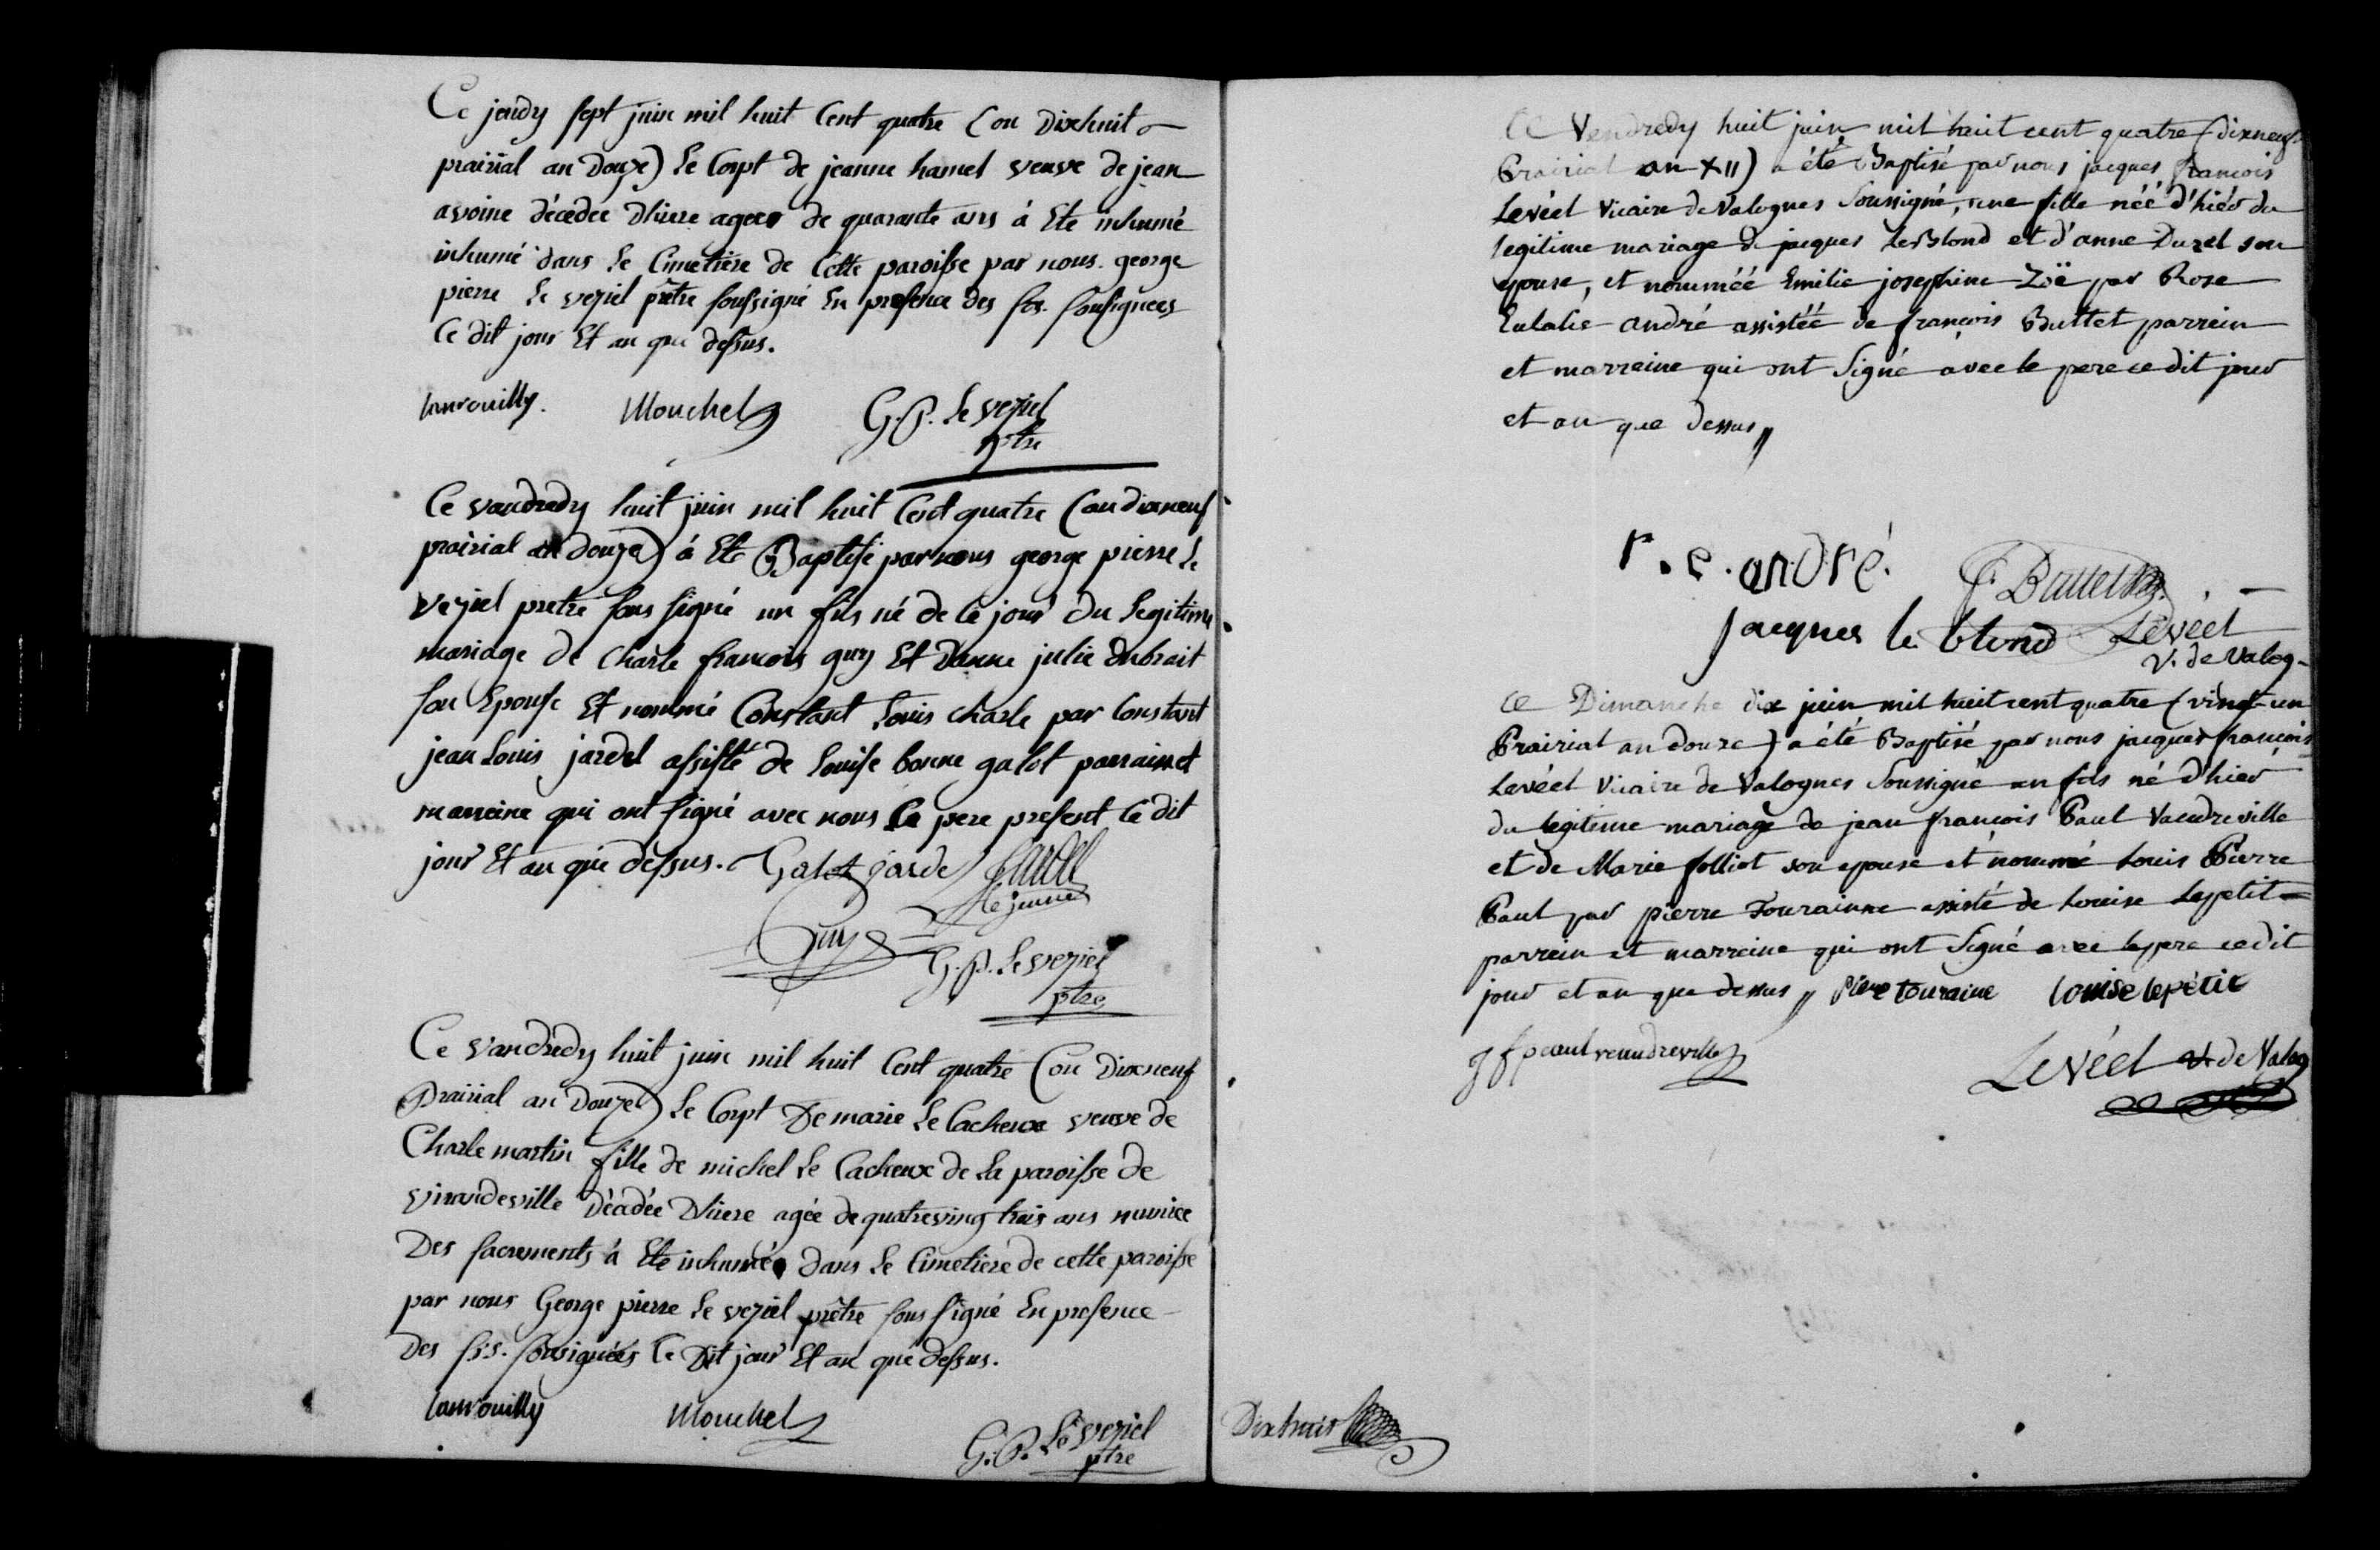 Ce jeudy sept juin mil huit Cent quatre (ou Dixhuit
prairial an Douze) Le Corpt de jeanne hamel veuve de jean
avoine décédée D'hiere agée de quarante ans à Eté inhumé
inhumé dans Le Cimetière de Cette paroisse par nous george
pierre Le veziel prêtre soussigné En presence des srs. sousignees
Ce dit jour Et an que dessus.
Lanrouilly. Mouchel G. P. Le veziel
ptre
Ce vandredy huit juin mil huit Cent quatre (ou dixneuf
prairial an douze) à Eté Baptisé par nous george pierre Le
veziel pretre sous signé un fils né de ce jour du Legitime
mariage de Charle francois guy Et Danne julie dubrait
son Epouse Et nommé Constant Louis Charle par Constant
jean Louis jardel assisté de Louise bonne galot parrain et
marreine qui ont signé avec nous Le pere present Ce dit
jour Et an que dessus. Galot jardel jardel
le jeune
Guy G. P. Le veziel
ptre
Ce vandredy huit juin mil huit Cent quatre (ou Dixneuf
Prairial an Douze) Le Corpt De marie Le Cacheux veuve de
Charle martin fille de michel Le Cacheux de La paroisse de
virandeville Décédée D'hiere agée de quatreving trois ans munice
Des sacrements à Eté inhumée dans Le Cimetiere de cette paroisse
par nous George pierre Le veziel prêtre sous signé En presence
Des srs. sousignées Ce Dit jour Et an que dessus.
Lanrouilly Mouchel G. P. Le veziel
ptre
Ce Vendredy huit juin mil huit cent quatre (dixneuf
Prairial an XII) a été Baptisé par nous jacques françois
Levéel Vicaire de Valognes Soussigné, une fille néé d'hier du
legitime mariage de jacques LeBlond et d'anne Durel son
epouse, et nomméé Emilie josephine Zoë par Rose
Eulalie andré assistéé de françois Buttet parrein
et marreine qui ont Signé avec le pere ce dit jour
et an que dessus //
r. e. andré. F Buttet
jacques le blond Levéel
V. de Valog-
Ce Dimanche dix juin mil huit cent quatre (vingt-un
Prairial an douze) a été Baptisé par nous jacques françois
Levéel Vicaire de Valognes Soussigné un fils né d'hier
du legitime mariage de jean françois Paul Vaudreville
et de Marie folliot son epouse et nommé Louis Pierre
Paul par pierre Tourainne assisté de Louise Lepetit
parrein et marreine qui ont Signé avec le pere ce dit
jour et an que dessus // Piere touraine Louise lepétit
J f paul veaudreville Levéel V. de Valog
Dixhuit